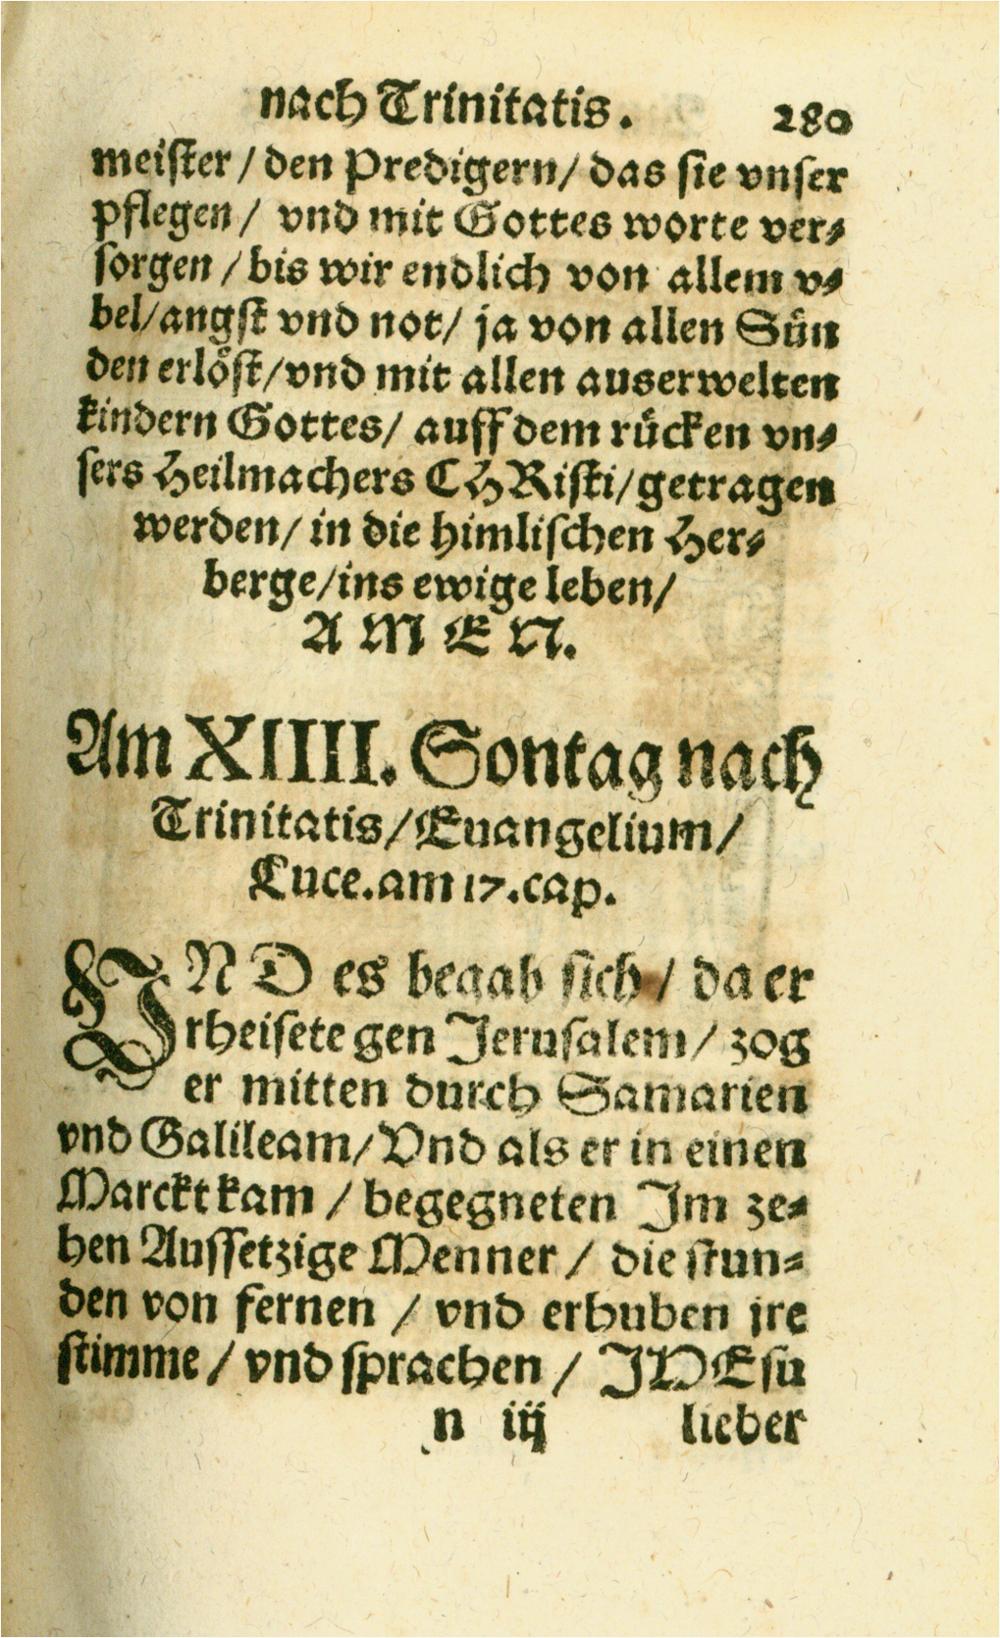 nach Trinitatis. 280
meiſter / den Predigern / das ſie vnſer
pflegen / vnd mit Gottes worte ver⸗
ſorgen / bis wir endlich von allem v⸗
bel / angſt vnd not / ja von allen Sün
den erlöſt / vnd mit allen auserwelten
kindern Gottes / auff dem rücken vn⸗
ſers Heilmachers CHRiſti / getragen
werden / in die himliſchen Her⸗
berge / ins ewige leben /
A M E N.
Am XIIII. Sontag nach
Trinitatis / Euangelium /
Luce. am 17. cap.
VND es begab ſich / da er
rheiſete gen Jeruſalem / zog
er mitten durch Samarien
vnd Galileam / Vnd als er in einen
Marckt kam / begegneten Jm ze⸗
hen Auſſetzige Menner / die ſtun⸗
den von fernen / vnd erhuben jre
ſtimme / vnd ſprachen / JHEſu
n iij lieber